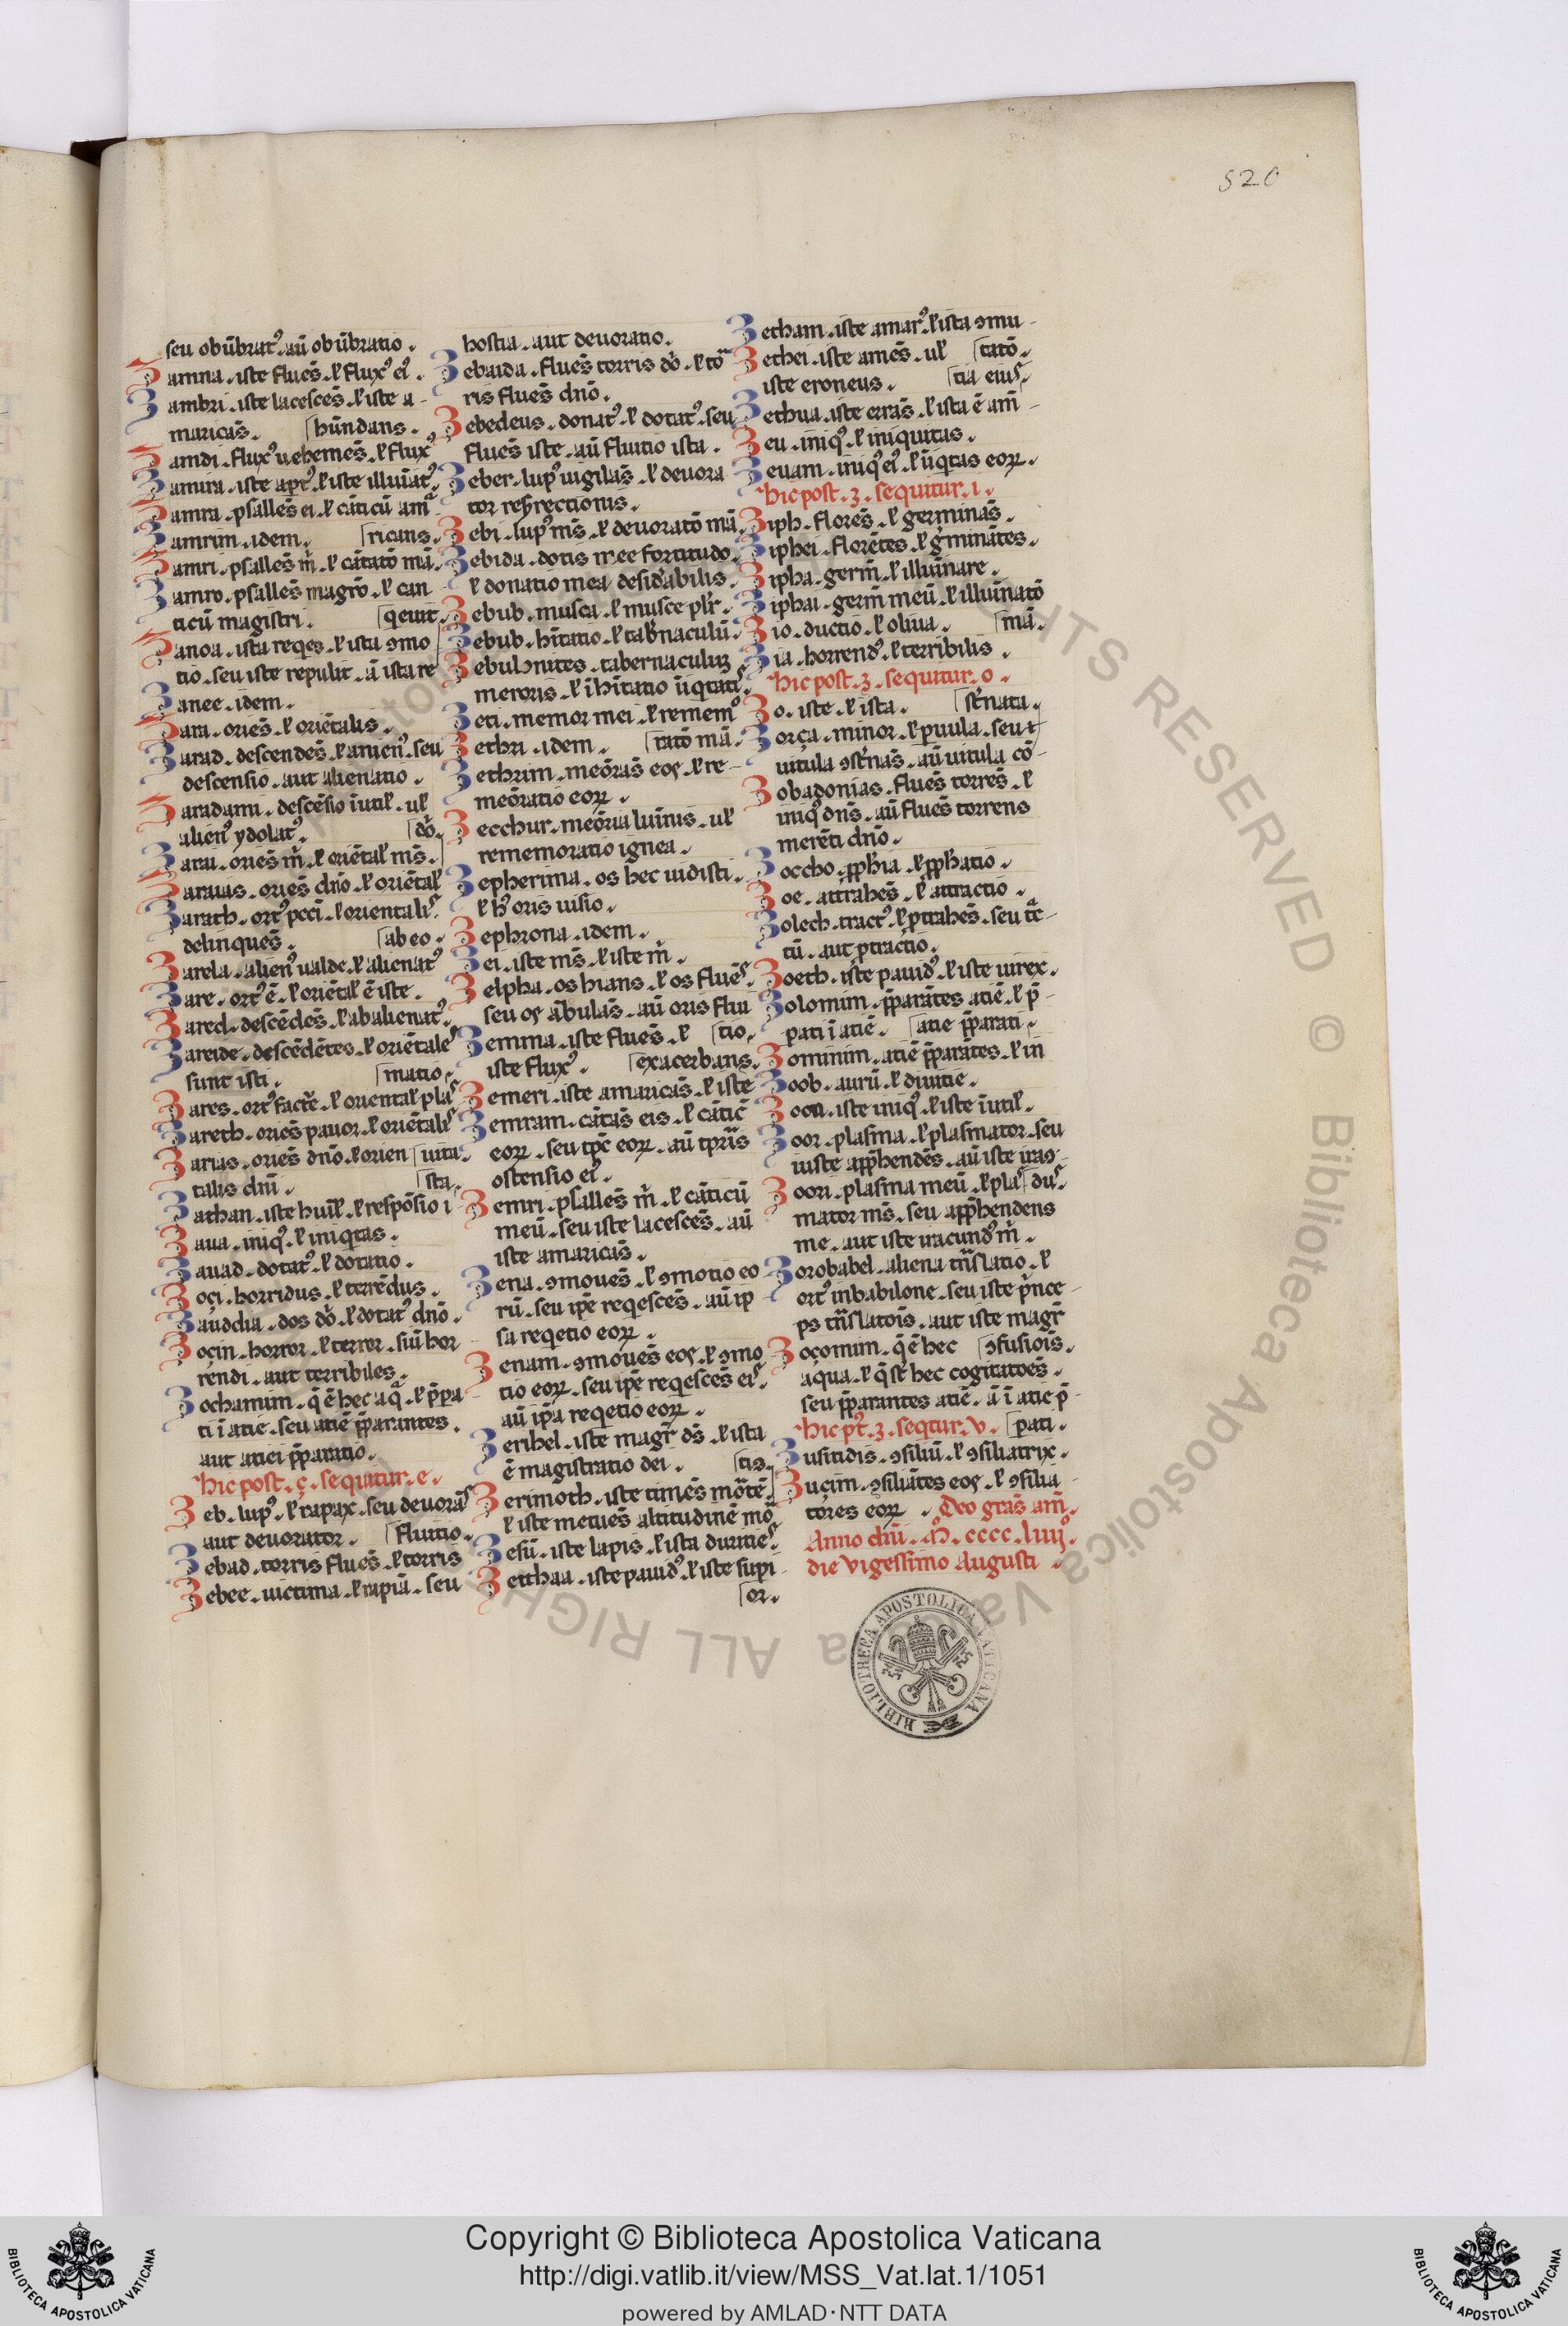 520
seu obūbratꝰ. aū obūbratio.
Zamna. iste fluēs. ł fluxꝰ eiꝰ.
Zambri. iste lacescēs. ł iste a-
maricās. ⌈hūndans.
Zamdi. fluxꝰ uehemēs. ł fluxꝰ
Zamira. iste aptꝰ. ł iste illuīatꝰ.
Zamra. psallēs ei. ł cāticū amᵃ
Zamrim. idem. ⌈ricans.
Zamri. psallēs m̄. ł cātatō mā.
Zamro. psallēs magrō. ł can
ticū magistri. ⌈qeuit.
Zanoa. ista reqes. ł ista ꝯmo
tio. seu iste repulit. ā ista re
Zanee. idem.
Zara. oriēs. ł oriētalis.
Zarad. descendēs. ł aniēnꝰ. seu
descensio. aut alienatio.
Zaradami. descēsio īutił. uł
alienꝰ ydolatꝰ. ⌈dō.
Zarai. oriēs m̄. ł oriētał ms̄.
Zaraias. oriēs dn̄o. ł oriētał
Zarath. ortꝰ pcc̄i. ł orientalis
delinquēs. ⌈ab eo.
Zarela. alienꝰ ualde. ł alienatꝰ
Zare. ortꝰ ē. ł oriētał ē iste.
Zared. descēdēs. ł abalienatꝰ.
Zareide. descēdētes. ł oriētales
sunt isti. ⌈matio.
Zares. ortꝰ factꝰ ē. ł orientał plas
Zareth. oriēs pauor. ł oriētalis
Zarias. oriēs dn̄o. ł orien ⌈iuita.
talis dn̄i. ⌈sta.
Zathan. iste huił. ł respōsio i
Zaua. iniqꝰ. ł iniqitas.
Zauad. dotatꝰ. ł dotatio.
Zoci. horridus. ł terrēdus.
Zaudia. dos dō. ł dotatꝰ dn̄o.
Zocin. horror. ł terror. siū hor
rendi. aut terribiles.
Zochamim. q̄ ē hec aqᵃ. ł p̄pa
ti ī atiē. seu atiē p̄parantes.
aut atiei p̄paratio.
Hic post. ç. sequitur. e.
Zeb. lupꝰ. ł rapax. seu deuorās
aut deuorator. ⌈fluitio.
Zebad. torris fluēs. ł torris
Zebee. uictima. ł rapiā. seu
hostia. aut deuoratio.
Zebaida. fluēs torris dō. ł to
ris fluēs dn̄o.
Zebedeus. donatꝰ. ł dotatꝰ. seu
fluēs iste. aū fluitio ista.
Zeber. lupꝰ uigilās. ł deuora
tor resrectionis.
Zebi. lupꝰ ms̄. ł deuoratō mā.
Zebida. dotis mee fortitudo.
ł donatio mea desidabilis.
Zebub. musca. ł musce plr̄.
Zebub. hītatio. ł tabnaculū.
Zebulonites. tabernaculuz
meroris. ł īhītatio īiqtatꝭ.
Zeci. memor mei. ł rememo
Zethri. idem. ⌈tatō mā.
Zethrim. meōrās eos. ł re-
meōratio eoꝝ.
Zecchur. meōria luīnis. uł
rememoratio ignea.
Zepherima. os hec uidisti.
ł hꝰ oris uisio.
Zephrona. idem.
Zei. iste ms̄. ł iste m̄.
Zelpha. os hians. ł os fluēs
seu os ābulās. aū oris flui
Zemma. iste fluēs. ł ⌈tio.
iste fluxꝰ. ⌈exacerbans.
Zemeri. iste amaricās. ł iste
Zemram. cātās eis. ł cātic̄
eoꝝ. seu tp̄c eoꝝ. aū tpr̄is
ostensio eiꝰ.
Zemri. psallēs m̄. ł cāticū
meū. seu iste lacescēs. aū
iste amaricās.
Zena. ꝯmouēs. ł ꝯmotio eo
rū. seu ip̄e reqescēs. aū ip
sa reqetio eoꝝ.
Zenam. ꝯmouēs eos. ł ꝯmo
tio eoꝝ. seu ip̄e reqescēs eis.
aū ip̄a reqetio eoꝝ.
Zerihel. iste magr̄ ds̄. ł ista
ē magistratio dei. ⌈tis.
Zerimoth. iste timēs mōtē.
ł iste metuēs altitudinē mō
Zesū. iste lapis. ł ista duritiēs
Zetthaa. iste pauidꝰ. ł iste supi
⌈or.
Zetham. iste amarꝰ. ł ista ꝯmu-
Zethei. iste amēs. uł ⌈tatō.
iste eroneus. ⌈tia eiuˢ.
Zethua. iste errās. ł ista ē am̄-
Zeu. iniqꝰ. ł iniquitas.
Zeuam. iniqꝰ eiꝰ. ł īiqtas eoꝝ.
Hic post. z. sequitur. i.
Ziph. florēs. ł germinās.
Ziphei. florētes. ł gminātes.
Zipha. germ̄. ł illuīnare.
Ziphai. germ̄ meū. ł illuīnatō
Zio. ductio. ł oliua. ⌈mā.
Zia. horrendꝰ. ł terribilis.
Hic post. z. sequitur. o.
Zo. iste. ł ista. ⌈st̄nata.
Zorça. minor. ł puula. seu
uitula ꝯst̄nās. aū uitula cō-
Zobadonias. fluēs torrēs. ł
iniqꝰ dn̄s. aū fluēs torrens
merēti dn̄o.
Zoccho. ꝓph̄ia. ł ꝓph̄atio.
Zoe. attrahēs. ł attractio.
Zolech. tractꝰ. ł ptrahēs. seu tᵃc-
tū. aut ptractio.
Zoeth. iste pauidꝰ. ł iste uirex.
Zolomim. p̄parātes atiē. ł p̄-
pati ī atiē. ⌈atie p̄parati.
Zominim. atiē p̄parātes. ł in
Zoob. aurū. ł diuitie.
Zoon. iste iniqꝰ. ł iste īutił.
Zoor. plasma. ł plasmator. seu
iuste app̄hendēs. aū iste iraꝯ-
Zoori. plasma meū. ł plas ⌈duˢ.
mator ms̄. seu app̄hendens
me. aut iste iracundꝰ m̄.
Zorobabel. aliena tn̄slatio. ł
ortꝰ in babilone. seu iste prince-
ps tn̄slatoīs. aut iste magr̄
Zoçomim. q̄ ē hec ⌈ꝯfusioīs.
aqua. ł q̄ st̄ hec cogitatoēs.
seu p̄parantes atiē. ā ī atie p̄
Hic pt̄. z. seqtur. v. ⌈pati.
Zusitidis. ꝯsiliū. ł ꝯsiliatrix.
Zuçim. ꝯsiliātes eos. ł ꝯsilia-
tores eoꝝ. Deo gras̄ am̄.
Anno dn̄i. M̊. cccc. liiij̊.
die vigessimo Augusti.
BIBLIOTHECA APOSTOLICA VATICANA
© Biblioteca Apostolica Vaticana ALL RIGHTS RESERVED
Copyright © Biblioteca Apostolica Vaticana
http://digi.vatlib.it/view/MSS_Vat.lat.1/1051
powered by AMLAD·NTT DATA
BIBLIOTECA APOSTOLICA VATICANA
BIBLIOTECA APOSTOLICA VATICANA